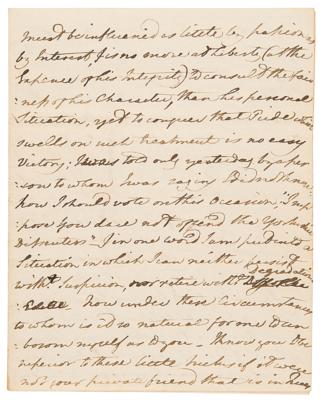 must be influenced as little by passion as
by Interest, is no more at Liberty (at the
Expence of his Integrity) to consult the fair
ness of his Character, than his personal
Situation, yet to conquer that Pride which
swells on such treatment is no easy
Victory; I was told only yesterday by a per
son to whom I was saying
how I should vote on this Occasion, "I sup
pose you dare not offend the Yorkshire
Dissenters" in one word I am put into a
Situation, in which I can neither persist
witht Suspicion, nor retire witht Degradation
now under these circumstances
to whom is it so natural for me to un
bosom myself as to you — I know you to be
superior to these little if it were
not your private friend that is in